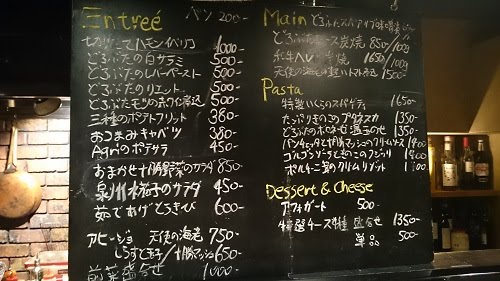 Entreé パン 200-
切りたてハモンイベリコ 1000-
どろぶたの白サラミ 500-
どろぶたのレバーペースト 500-
どろぶたのリエット 500-
どろぶたモツの白ワイン煮込 500-
三種のポテトフリット 380-
おつまみキャベツ 380-
Agriのポテサラ 450-
おまかせ十勝野菜のサラダ 850-
泉州水茄子のサラダ 450-
茹であげとうきび 600-
アヒージョ 天使の海老 750-
しらすと玉子/十勝マッシュ 650-
前菜盛合せ 1000-
Main
どろぶたロース炭焼 850-/100g
和牛ヘレ 炭焼 1650-/100g
天使の海老の軽いトマト煮込 1500-
Pasta
特製いくらのスパゲティ 1650-
たっぷりきのこのプタネスカ 1350-
どろぶたのボロネーゼ 温玉のせ 1350-
パンチェッタと十勝マッシュのクリームソース 1400
ゴルゴンゾーラときのこのフジッリ 1400
ポルチーニ茸のクリームリゾット
Dessert & Cheese
アフォガート 500-
特選チーズ4種 盛合せ 1350-
単品 500-